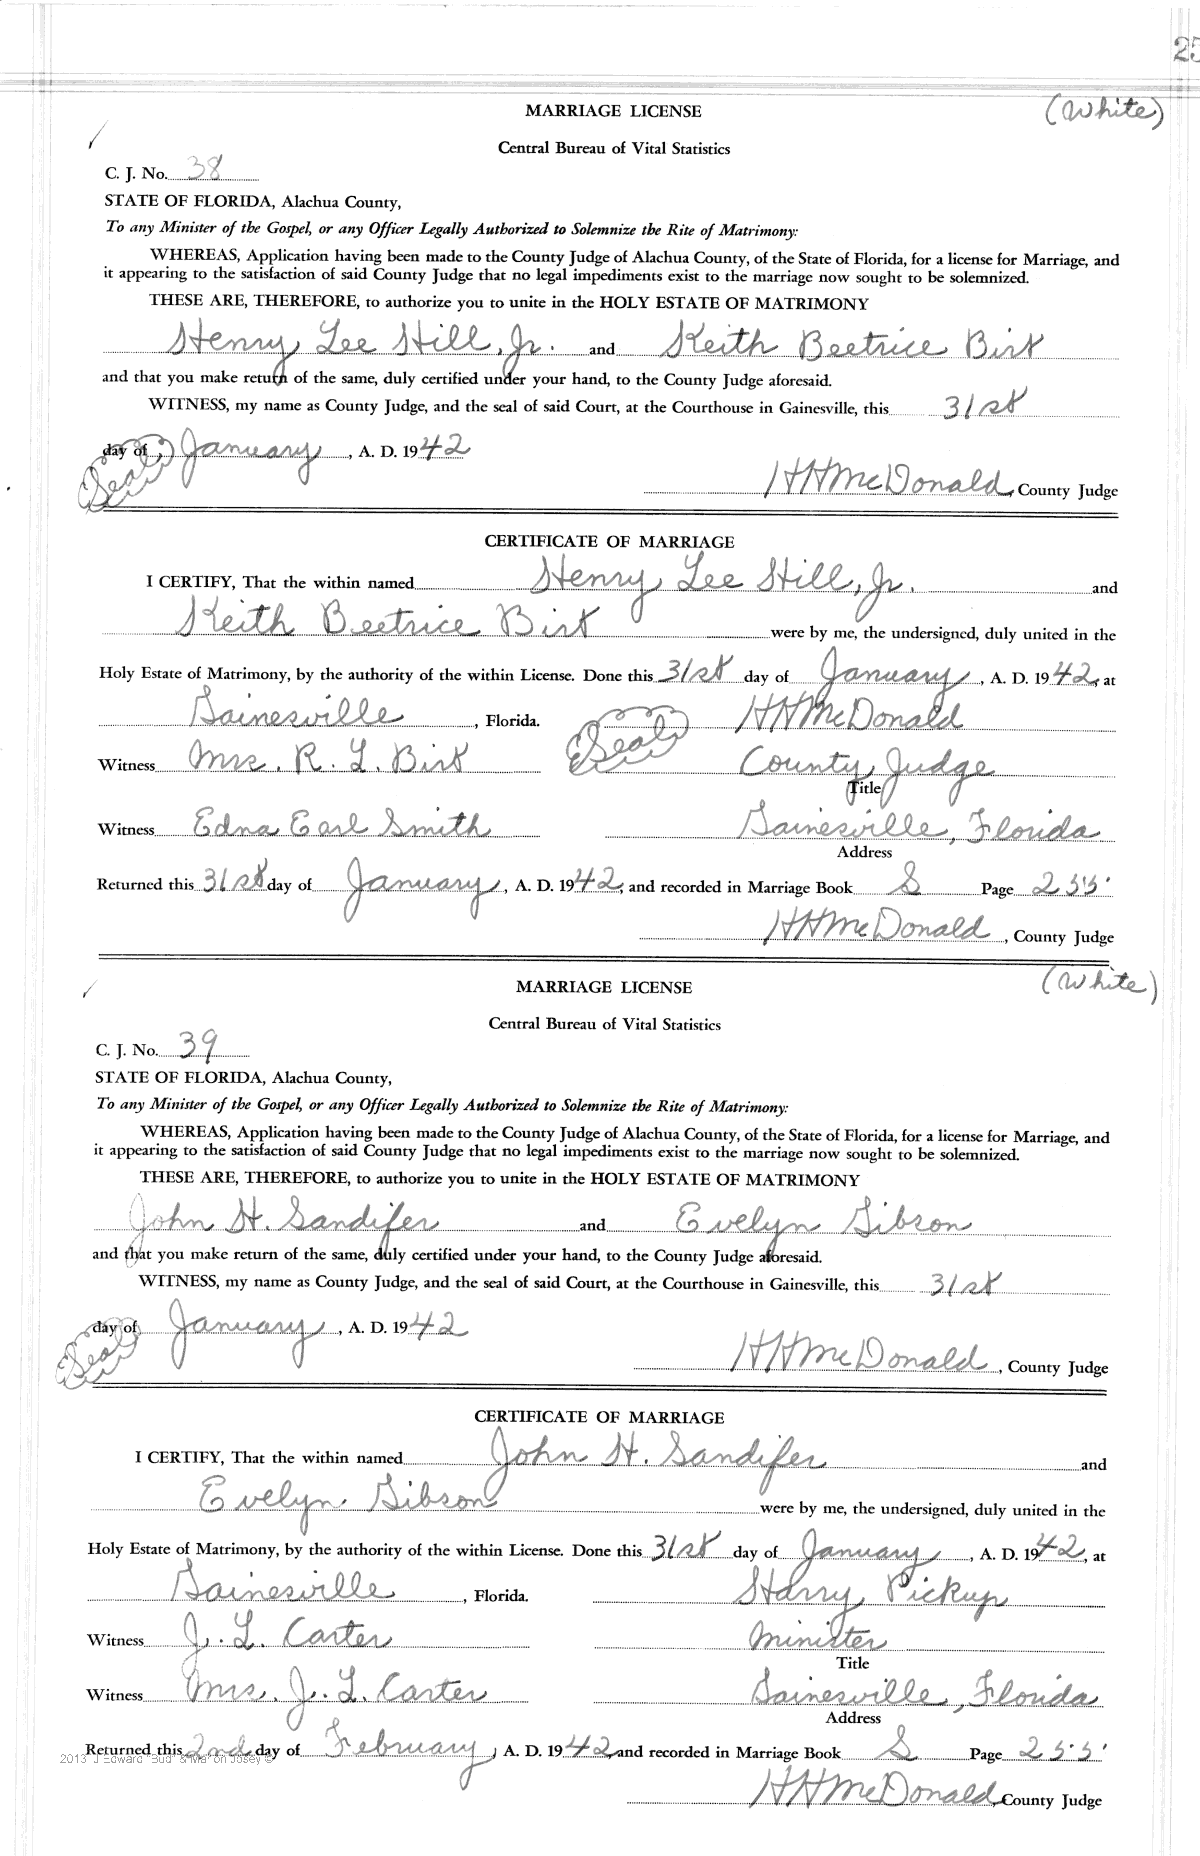 25
MARRIAGE LICENSE (White)
Central Bureau of Vital Statistics
C. J. No. 38
STATE OF FLORIDA, Alachua County,
To any Minister of the Gospel, or any Officer Legally Authorized to Solemnize the Rite of Matrimony:
WHEREAS, Application having been made to the County Judge of Alachua County, of the State of Florida, for a license for Marriage, and
it appearing to the satisfaction of said County Judge that no legal impediments exist to the marriage now sought to be solemnized.
THESE ARE, THEREFORE, to authorize you to unite in the HOLY ESTATE OF MATRIMONY
Henry Lee Hill, Jr. and Keith Beetrice Birt
and that you make return of the same, duly certified under your hand, to the County Judge aforesaid.
WITNESS, my name as County Judge, and the seal of said Court, at the Courthouse in Gainesville, this 31st
day of January, A. D. 1942
(Seal) H H McDonald, County Judge
CERTIFICATE OF MARRIAGE
I CERTIFY, That the within named Henry Lee Hill, Jr. and
Keith Beetrice Birt were by me, the undersigned, duly united in the
Holy Estate of Matrimony, by the authority of the within License. Done this 31st day of January, A. D. 1942, at
Gainesville, Florida. (Seal) H H McDonald
Witness Mrs. R. L. Birt County Judge
Title
Witness Edna Earl Smith Gainesville, Florida
Address
Returned this 31st day of January, A. D. 1942, and recorded in Marriage Book S Page 255
H H McDonald, County Judge
MARRIAGE LICENSE (White)
Central Bureau of Vital Statistics
C. J. No. 39
STATE OF FLORIDA, Alachua County,
To any Minister of the Gospel, or any Officer Legally Authorized to Solemnize the Rite of Matrimony:
WHEREAS, Application having been made to the County Judge of Alachua County, of the State of Florida, for a license for Marriage, and
it appearing to the satisfaction of said County Judge that no legal impediments exist to the marriage now sought to be solemnized.
THESE ARE, THEREFORE, to authorize you to unite in the HOLY ESTATE OF MATRIMONY
John H. Sandifer and Evelyn Gibson
and that you make return of the same, duly certified under your hand, to the County Judge aforesaid.
WITNESS, my name as County Judge, and the seal of said Court, at the Courthouse in Gainesville, this 31st
day of January, A. D. 1942
(Seal) H H McDonald, County Judge
CERTIFICATE OF MARRIAGE
I CERTIFY, That the within named John H. Sandifer and
Evelyn Gibson were by me, the undersigned, duly united in the
Holy Estate of Matrimony, by the authority of the within License. Done this 31st day of January, A. D. 1942, at
Gainesville, Florida. Harry Pickup
Witness J. L. Carter Minister
Title
Witness Mrs. J. L. Carter Gainesville, Florida
Address
Returned this 2nd day of February, A. D. 1942 and recorded in Marriage Book S Page 255
2013 J Edward "Bud" & Marion Josey ©
H H McDonald, County Judge